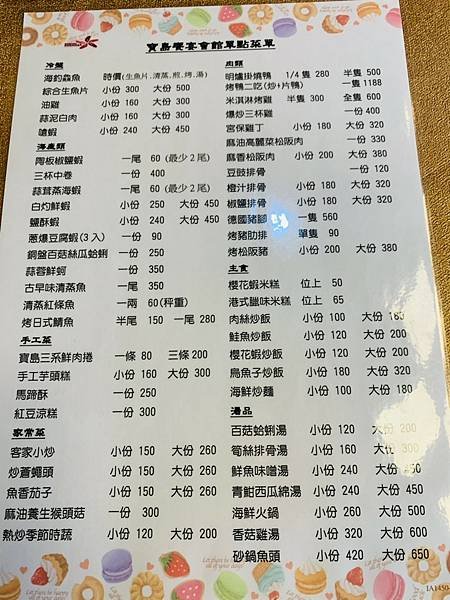 寶島饗宴會館單點菜單
冷盤
海釣鱻魚 時價(生魚片,清蒸,煎,烤,湯)
綜合生魚片 小份 300 大份 500
油雞 小份 160 大份 300
蒜泥白肉 小份 160 大份 300
嗆蝦 小份 240 大份 450
海產類
陶板椒鹽蝦 一尾 60 (最少 2 尾)
三杯中卷 一份 400
蒜茸蒸海蝦 一尾 60 (最少 2 尾)
白灼鮮蝦 小份 250 大份 450
鹽酥蝦 小份 240 大份 450
蔥爆豆腐蝦(3 入) 一份 90
銅盤百菇絲瓜蛤蜊 一份 350
蒜蓉鮮蚵 一份 350
古早味清蒸魚 一尾 350
清蒸紅條魚 一兩 60 (秤重)
烤日式鯖魚 半尾 150 一尾 280
手工菜
寶島三系鮮肉捲 一條 80 三條 200
手工芋頭糕 小份 160 大份 300
馬蹄酥 一份 250
紅豆涼糕 一份 300
家常菜
客家小炒 小份 150 大份 260
炒蒼蠅頭 小份 150 大份 260
魚香茄子 小份 150 大份 260
麻油養生猴頭菇 一份 300
熱炒季節時蔬 小份 120 大份 200
肉類
明爐掛燒鴨 1/4 隻 280 半隻 500
烤鴨二吃(炒+片鴨) 一隻 1188
米淇淋烤雞 半隻 300 全隻 600
爆炒三杯雞 一份 400
宮保雞丁 小份 180 大份 320
麻油高麗菜松阪肉 一份 330
麻香松阪肉 小份 200 大份 380
豆豉排骨 一份 120
橙汁排骨 小份 180 大份 320
椒鹽排骨 小份 180 大份 320
德國豬腳 一隻 560
烤豬肋排 單隻 90
烤松阪豬 小份 200 大份 380
主食
櫻花蝦米糕 位上 50
港式臘味米糕 位上 65
肉絲炒飯 小份 100 大份 180
鮭魚炒飯 小份 120 大份 200
櫻花蝦炒飯 小份 120 大份 200
烏魚子炒飯 小份 120 大份 200
海鮮炒麵 小份 100 大份 180
湯品
百菇蛤蜊湯 小份 120 大份 200
筍絲排骨湯 小份 160 大份 300
鮮魚味噌湯 小份 240 大份 450
青魽西瓜綿湯 小份 240 大份 450
海鮮火鍋 小份 260 大份 500
香菇雞湯 小份 320 大份 600
砂鍋魚頭 小份 420 大份 650